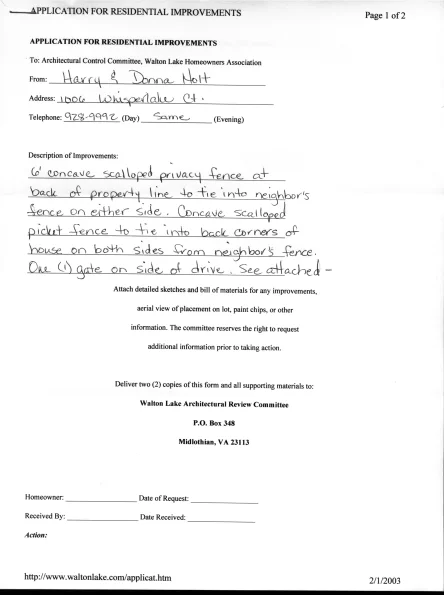 APPLICATION FOR RESIDENTIAL IMPROVEMENTS
Page 1 of 2
APPLICATION FOR RESIDENTIAL IMPROVEMENTS
To: Architectural Control Committee, Walton Lake Homeowners Association
From: Harry & Donna Nolt
Address: 1006 Whisperlake Ct.
Telephone: 928-9992 (Day) Same (Evening)
Description of Improvements:
6' concave scalloped privacy fence at
back of property line to tie into neighbor's
fence on either side. Concave scalloped
picket fence to tie into back corners of
house on both sides from neighbor's fence.
One (1) gate on side of drive. See attached -
Attach detailed sketches and bill of materials for any improvements,
aerial view of placement on lot, paint chips, or other
information. The committee reserves the right to request
additional information prior to taking action.
Deliver two (2) copies of this form and all supporting materials to:
Walton Lake Architectural Review Committee
P.O. Box 348
Midlothian, VA 23113
Homeowner: Date of Request:
Received By: Date Received:
Action:
http://www.waltonlake.com/applicat.htm
2/1/2003